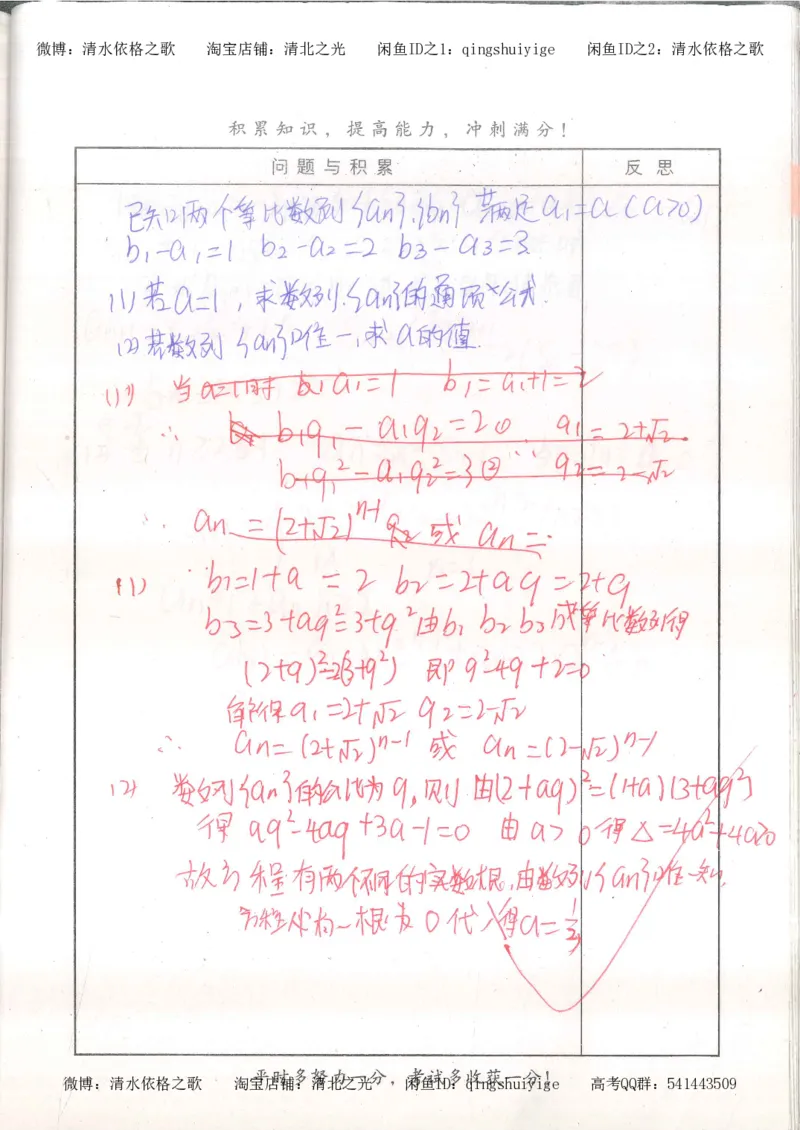 微博：清水依格之歌 淘宝店铺：清北之光 闲鱼ID之1：qingshuiyige 闲鱼ID之2：清水依格之歌
积累知识，提高能力，冲刺满分！
问题与积累 反思
已知两个等比数列{an},{bn} 若满足a₁=a(a>0)
b₁-a₁=1 b₂-a₂=2 b₃-a₃=3
(1)若a=1，求数列{an}的通项公式.
(2)若数列{an}唯一,求a的值.
(1) 当a=1时 b₁a₁=1 b₁=a₁+1=2
∴ b₁q₁-a₁q₂=2① q₁=2+√2.
b₁q₁²-a₁q₂²=3② ∵ q₂=2-√2
∴ an=(2+√2)ⁿ⁻¹ 或 an=
(1) b₁=1+a=2 b₂=2+aq=2+q
b₃=3+aq²=3+q² 由b₁ b₂ b₃成等比数列得
(2+q)²=2(3+q²) 即 q²-4q+2=0
解得q₁=2+√2 q₂=2-√2
∴ an=(2+√2)ⁿ⁻¹ 或 an=(2-√2)ⁿ⁻¹
(2) 数列{an}的公比为q,则由(2+aq)²=(1+a)(3+aq²)
得 aq²-4aq+3a-1=0 由a>0得△=4a²+4a>0
故方程有两个不同的实数根,由数列{an}唯一知,
方程必有一根为0代入得a=1/3
平时多努力一分，考试多收获一分！
微博：清水依格之歌 淘宝店铺：清北之光 闲鱼ID：qingshuiyige 高考QQ群：541443509